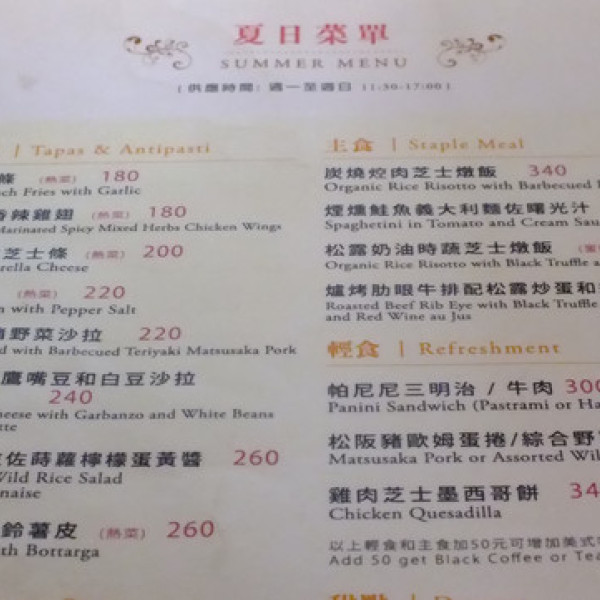 夏日菜單
SUMMER MENU
( 供應時間: 週一至週日 11:30-17:00 )
| Tapas & Antipasti
條 (熱菜) 180
French Fries with Garlic
香辣雞翅 (熱菜) 180
Marinated Spicy Mixed Herbs Chicken Wings
芝士條 (熱菜) 200
Cheese
(熱菜) 220
with Pepper Salt
野菜沙拉 220
with Barbecued Teriyaki Matsusaka Pork
鷹嘴豆和白豆沙拉
240
Cheese with Garbanzo and White Beans
佐蒔蘿檸檬蛋黃醬 260
Wild Rice Salad
鈴薯皮 (熱菜) 260
with Bottarga
主食 | Staple Meal
炭燒焢肉芝士燉飯 340
Organic Rice Risotto with Barbecued
煙燻鮭魚義大利麵佐曙光汁
Spaghetini in Tomato and Cream
松露奶油時蔬芝士燉飯
Organic Rice Risotto with Black Truffle
爐烤肋眼牛排配松露炒蛋和
Roasted Beef Rib Eye with Black Truffle
and Red Wine au Jus
輕食 | Refreshment
帕尼尼三明治 / 牛肉 300
Panini Sandwich (Pastrami or
松阪豬歐姆蛋捲/綜合野
Matsusaka Pork or Assorted
雞肉芝士墨西哥餅 34
Chicken Quesadilla
以上輕食和主食加50元可增加美式
Add 50 get Black Coffee or Tea